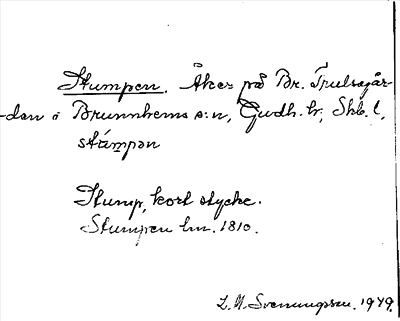 Stumpen. Åker på Br. Trulsgår-
den i Brunnhems s:n, Gudh. hr, Skb. l,
stámpən
Stump, kort stycke.
Stumpen lm. 1810.
Svenungsson. 1949.